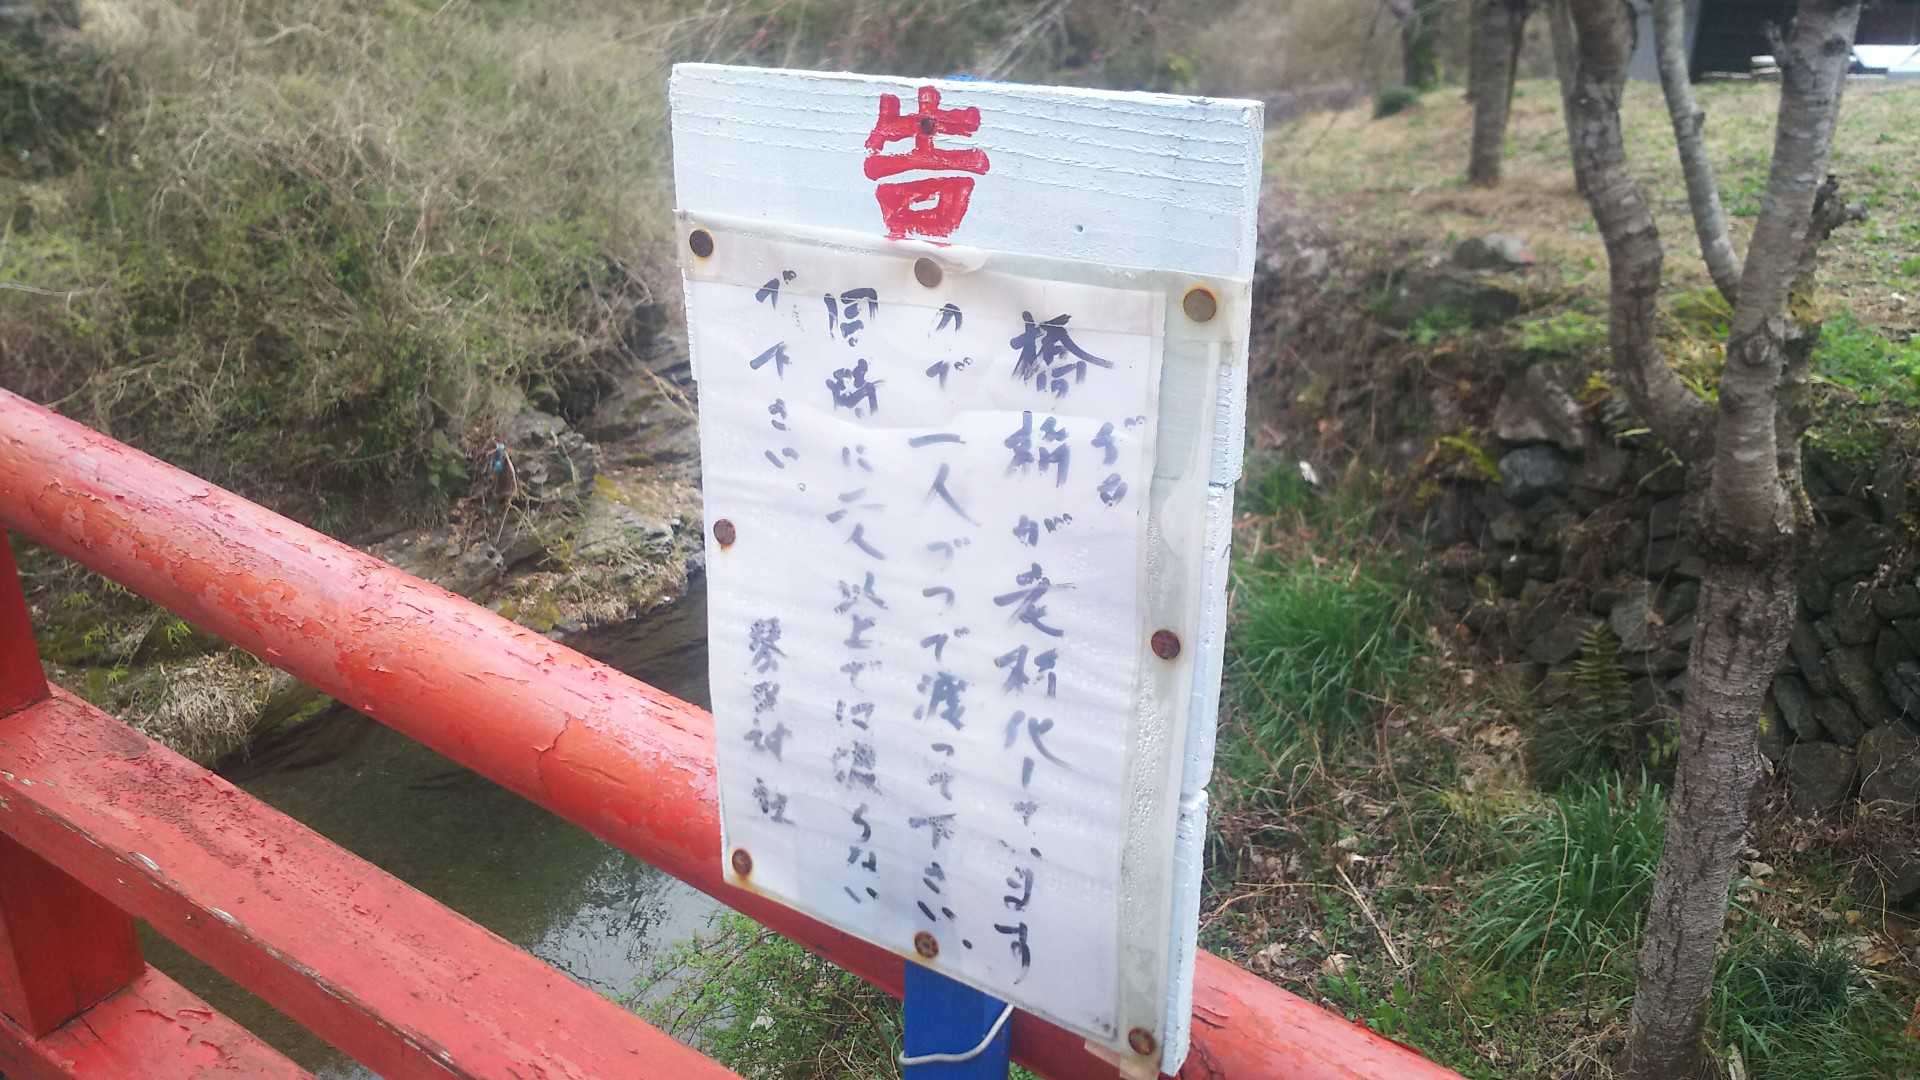 告
橋桁が老朽化しています
ゲタ
ので一人づつで渡って下さい。
同時に二人以上では渡らない
で下さい。
琴弾神社